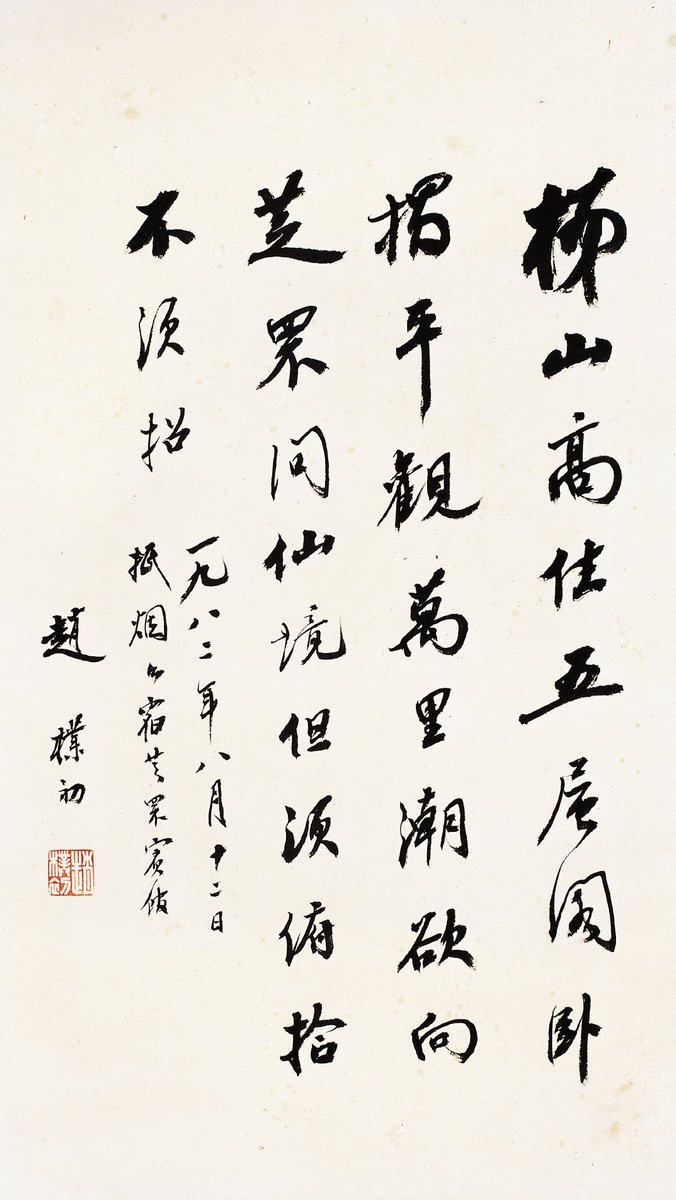 梯山高住五层阁卧
榻平觀萬里潮欲向
芝罘问仙境但须俯拾
不须招
一九八二年八月十二日
抵烟台宿芝罘宾馆
趙樸初
趙樸初